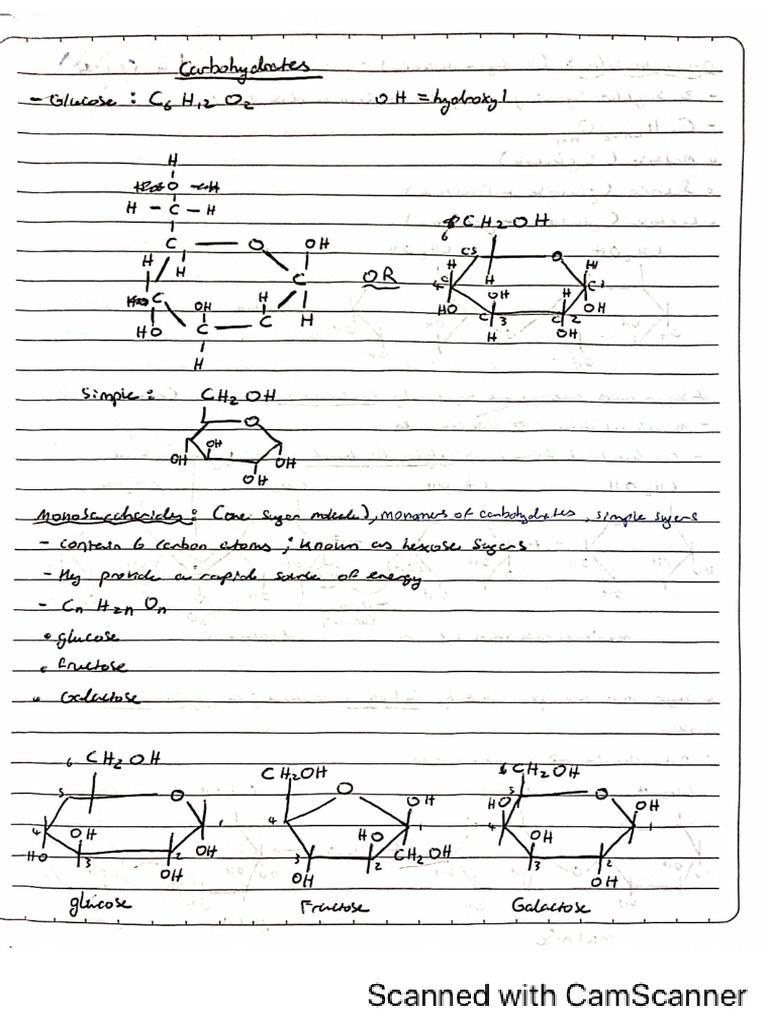 Carbohydrates
- Glucose : C6 H12 O2 OH = hydroxyl
H
O H
H - C - H
C O OH
H H C
C OH H
HO C C H
H
OR
6 CH2OH
C5 O
H H H
4C OH H C1
HO C 3 C 2 OH
H OH
Simple : CH2OH
O
OH
OH OH
OH
Monosaccharides : (one sugar molecule), monomers of carbohydrates, simple sugars
- contain 6 carbon atoms ; known as hexose sugars
- they provide a rapid source of energy
- Cn H2n On
• glucose
• fructose
• Galactose
6 CH2OH CH2OH 6 CH2OH
5 O O HO 5 O OH
4 OH 1 4 HO OH 1 4 OH 1
HO 3 2 OH 3 2 CH2OH 3 2
OH OH OH
glucose Fructose Galactose
Scanned with CamScanner